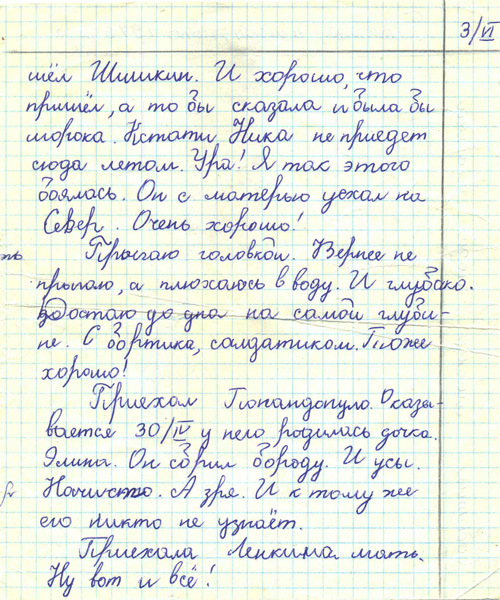 3/VI
шёл Шишкин. И хорошо, что
пришёл, а то бы сказала и была бы
морока. Кстати Ника не приедет
сюда летом. Ура! Я так этого
боялась. Он с матерью уехал на
Север. Очень хорошо!
Прыгаю головкой. Вернее не
прыгаю, а плюхаюсь в воду. И глубоко.
Достаю до дна на самой глуби-
не. С бортика, солдатиком. Тоже
хорошо!
Приехал Попандопуло. Оказы-
вается 30/IV у него родилась дочка.
Элина. Он сбрил бороду. И усы.
Начисто. А зря. И к тому же
его никто не узнаёт.
Приехала Ленкина мать.
Ну вот и всё!